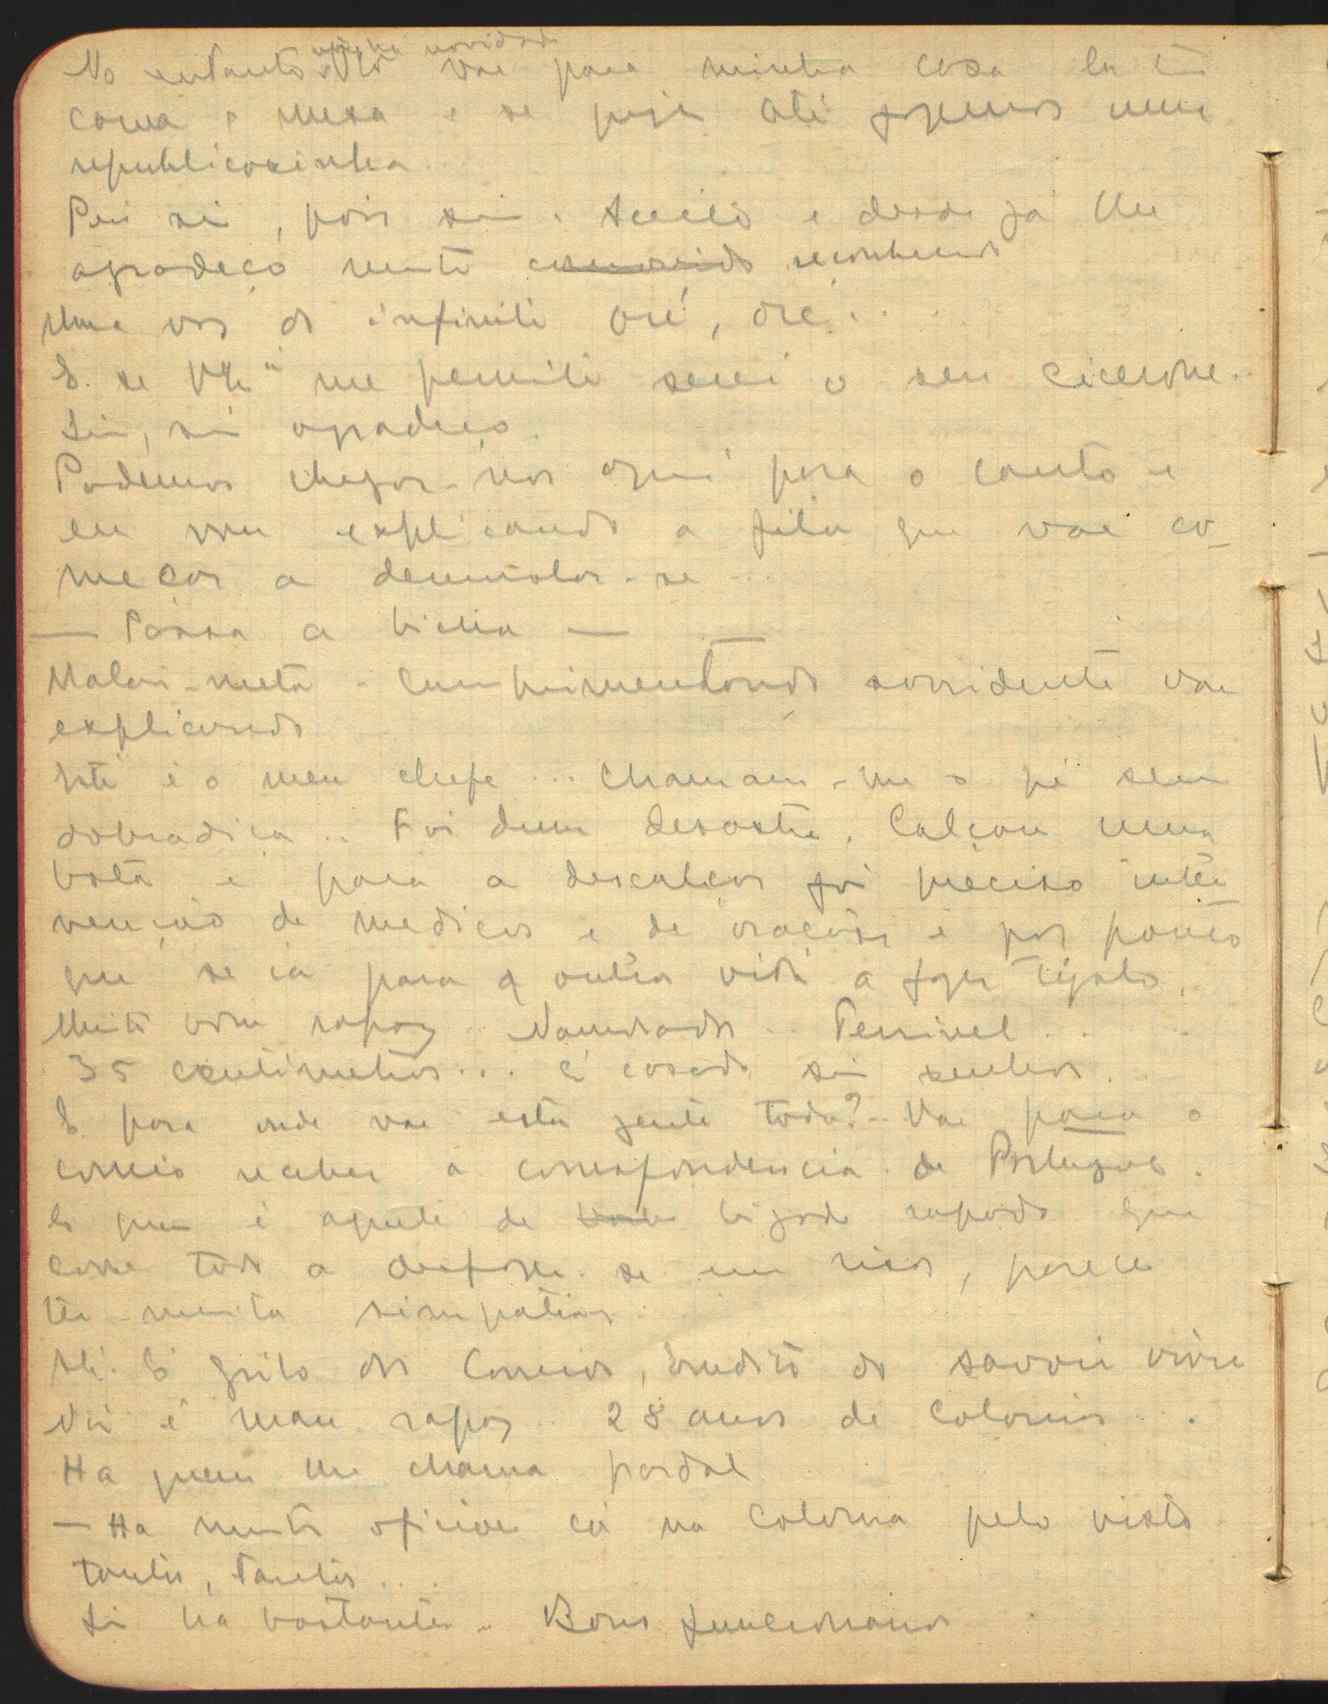 No entanto V. Ex.ª vai para minha casa la tem
cama e mesa e se puzer até fazemos uma
republicasinha.
Pois sim, pois sim. Aceito e desde já lhe
agradeço muito reconhecido
Uma voz do infinito oré, oré...
E se V. Ex.ª me permite serei o seu cicerone.
Sim, sim agradeço.
Podemos chegar-nos aqui para o canto e
eu vou explicando a fita que vai co-
meçar a desenrolar-se...
— Passa a bicha —
Malari-meta - cumprimentando sorridente vai
explicando
Este é o meu chefe... Chamam-lhe o pé sem
dobradiça... Foi dum desastre. Calçou uma
bota e para a descalçar foi preciso inter
venção de medicos e de orações e por pouco
que se ia para a outra vida a fazer tijolo.
Muito bom rapaz.. Namorado.. Terrivel...
35 centimetros... é casado sim senhor.
E para onde vai esta gente toda? Vai para o
correio receber a correspondencia de Portugal.
E quem é aquele de bigode rapado que
corre todo a desfazer-se em risos, parece
ter muita simpatia.
Ah! É grilo dos Correios, erudito do savoir vivre
Não é mau rapaz.. 28 anos de Colonias...
Ha quem lhe chama pardal
— Ha muito oficial cá na Colonia pelo visto
tantos, tantos...
Sim ha bastantes.. Bons funcionarios